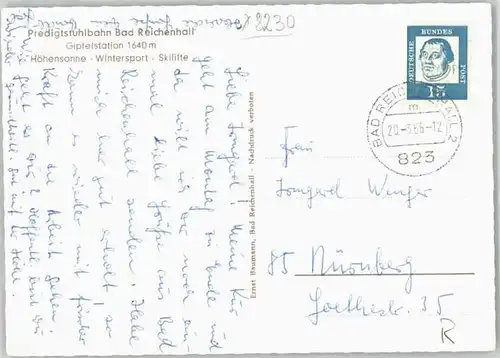 x/8230
Predigtstuhlbahn Bad Reichenhall
Gipfelstation 1640 m
Höhensonne · Wintersport · Skilifte
Liebe Irmgard! Meine Kur
geht am Montag zu Ende und
da will ich dir noch ein-
mal liebe Grüße aus Bad
Reichenhall senden. Habe
mich hier gut erholt, so
kann es wieder mit frischer
Kraft an die Arbeit gehen.
Wie geht es
Ernst Baumann, Bad Reichenhall · Nachdruck verboten
DEUTSCHE BUNDESPOST
15
BAD REICHENHALL 2
m
20.-3.65-12
823
Frau
Irmgard Wenger
85 Nürnberg
Goethestr. 35
R